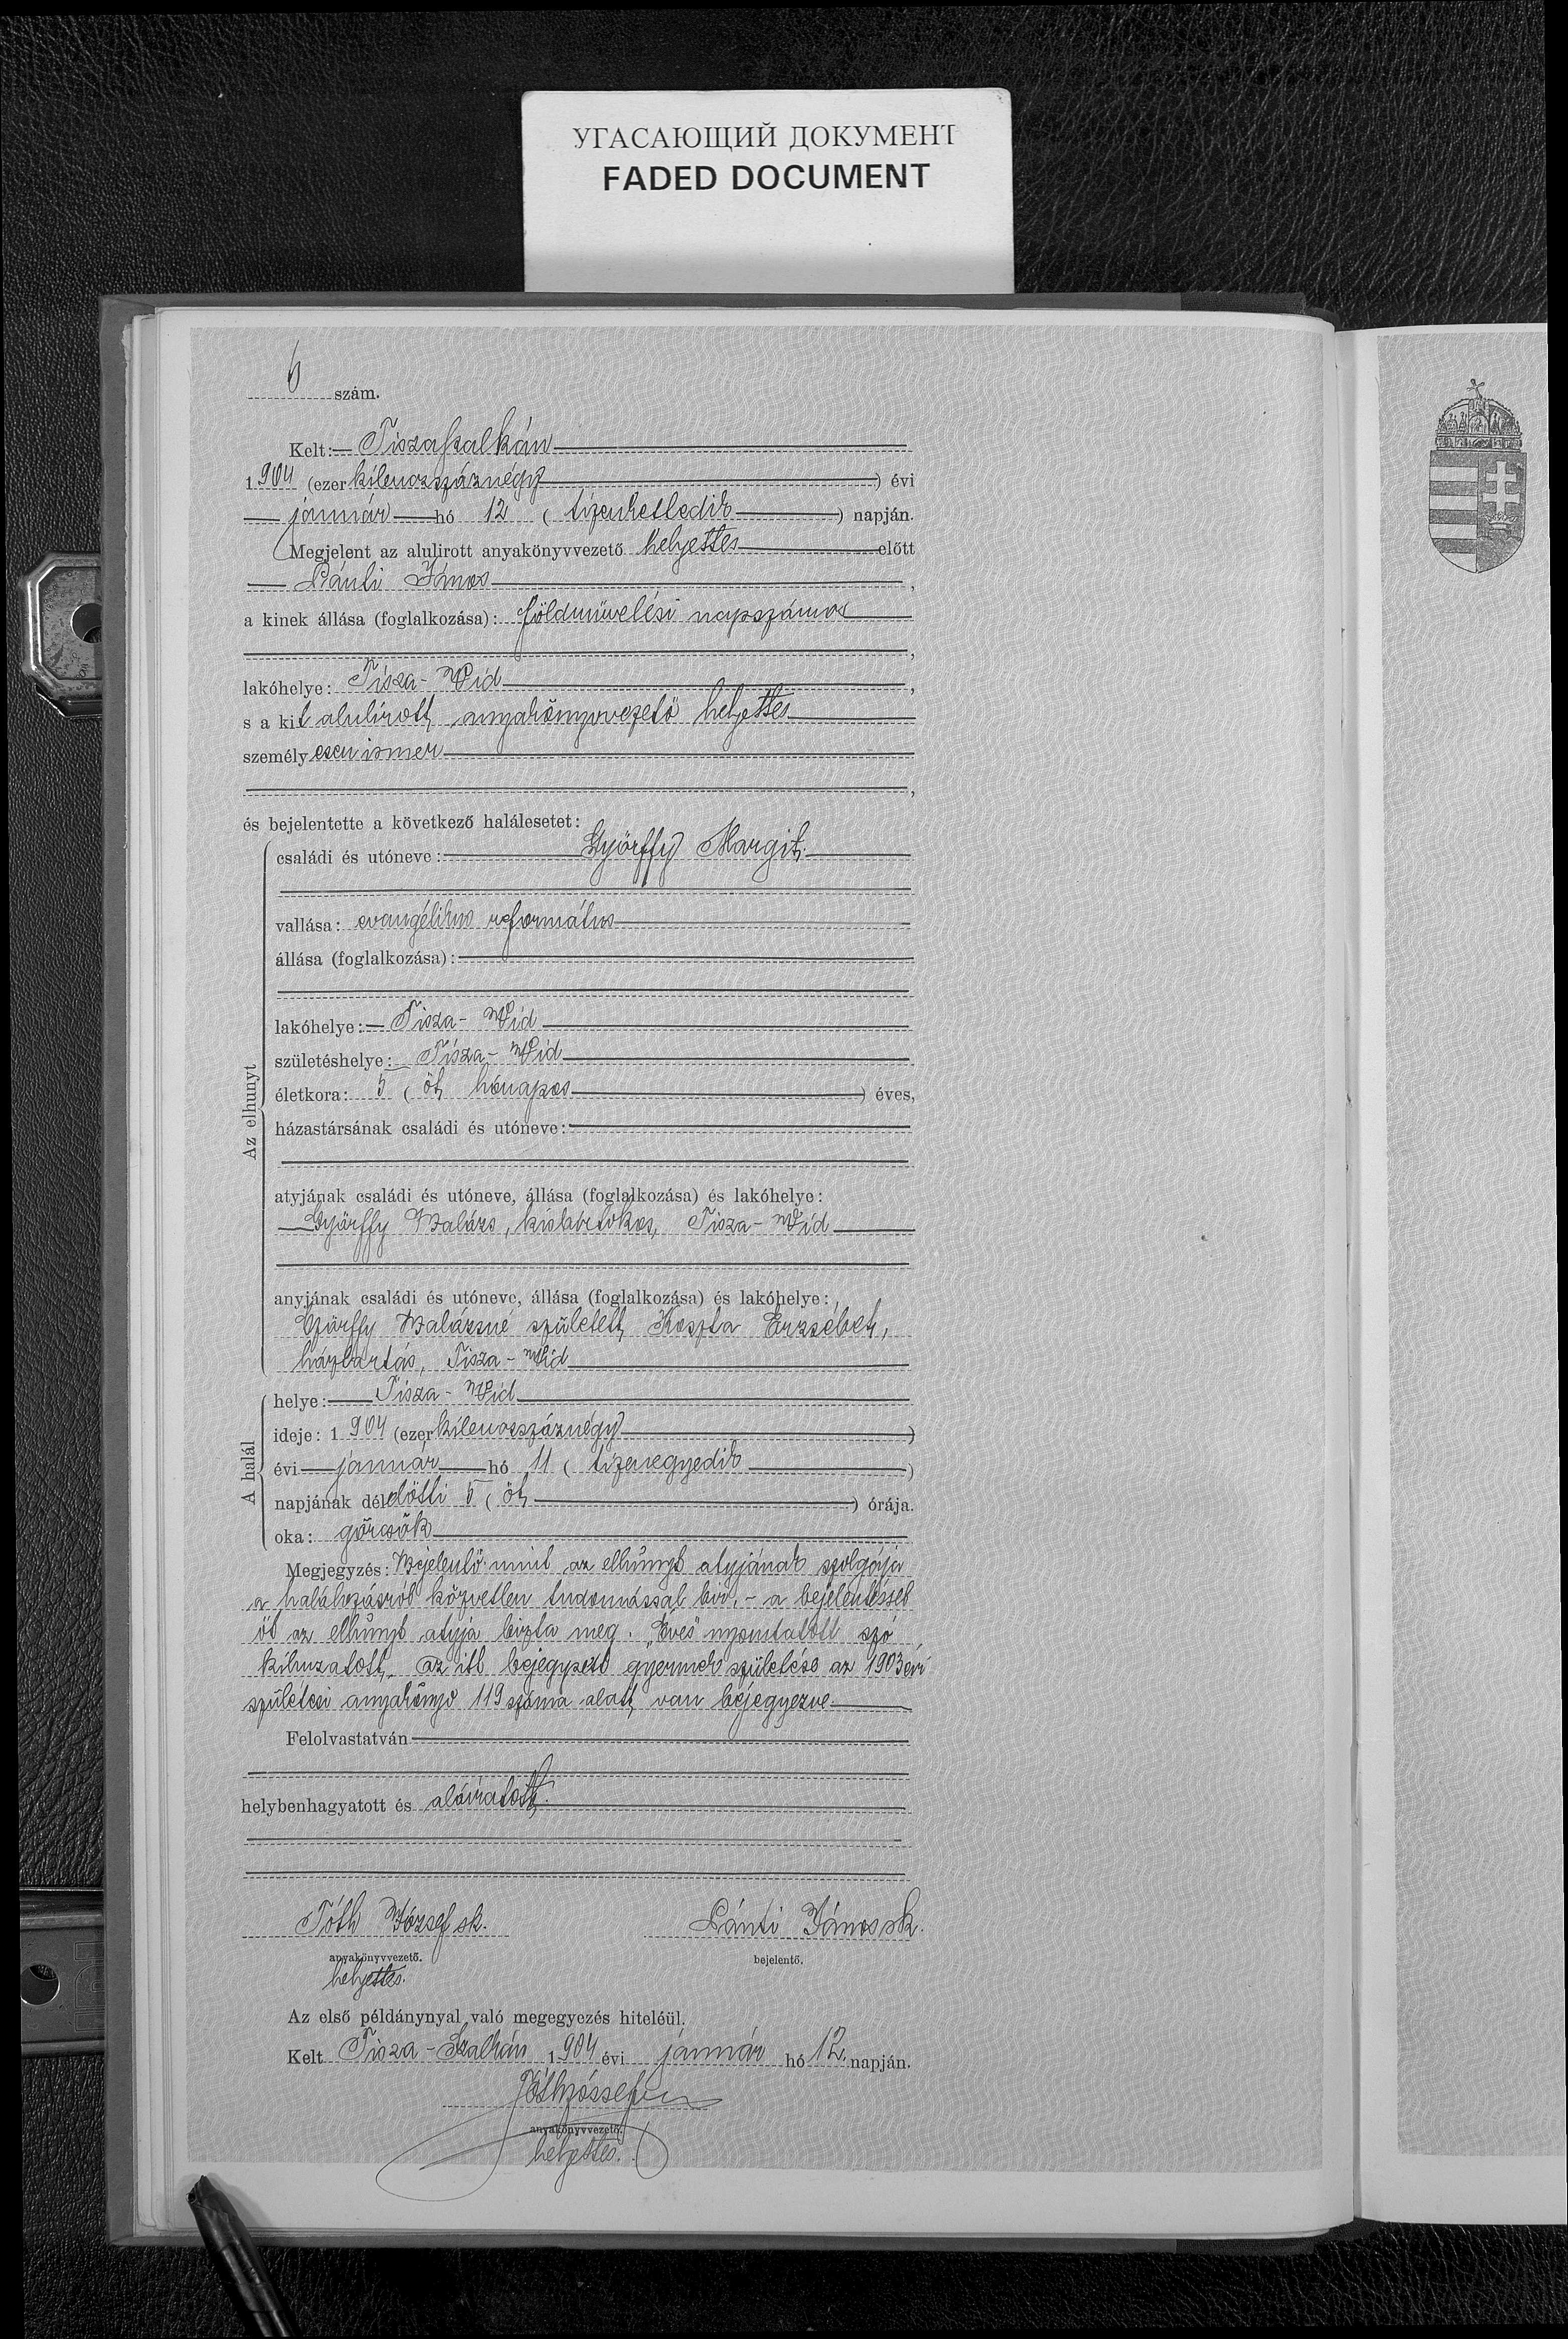 УГАСАЮЩИЙ ДОКУМЕНТ
FADED DOCUMENT
6 szám.
Kelt: Tiszaszalkán
1904 (ezer kilenczszáznégy) évi
január hó 12 (tizenkettedik) napján.
Megjelent az alulirott anyakönyvvezető helyettes előtt
János,
a kinek állása (foglalkozása): földmüvelési napszámos
,
lakóhelye: Tisza-Vid,
s a kit alulírott anyakönyvvezető helyettes
személyesen ismer
,
és bejelentette a következő halálesetet:
Az elhunyt
családi és utóneve: Györffy Margit
vallása: evangélikus református
állása (foglalkozása):
lakóhelye: Tisza-Vid
születéshelye: Tisza-Vid
életkora: 5 (öt hónapos) éves,
házastársának családi és utóneve:
atyjának családi és utóneve, állása (foglalkozása) és lakóhelye:
Györffy Balázs, kisbirtokos, Tisza-Vid
anyjának családi és utóneve, állása (foglalkozása) és lakóhelye:
Györffy Balázsné született Koszta Erzsébet,
háztartás, Tisza-Vid
A halál
helye: Tisza-Vid
ideje: 1904 (ezer kilenczszáznégy)
évi január hó 11 (tizenegyedik)
napjának délelőtti 5 (öt) órája.
oka: görcsök
Megjegyzés: Bejelentő mint az elhúnyt atyjának szolgája
a halálozásról közvetlen tudomással bir, - a bejelentéssel
őt az elhúnyt atyja bizta meg. „Éves" nyomtatott szó
kihuzatott. az itt bejegyzett gyermek születése az 1903 évi
születési anyakönyv 119 száma alatt van bejegyezve.
Felolvastatván
helybenhagyatott és aláiratott.
Tóth József sk. János sk.
anyakönyvvezető. bejelentő.
helyettes.
Az első példánynyal való megegyezés hiteléül.
Kelt Tisza-Szalkán 1904 évi január hó 12. napján.
Tóth József
anyakönyvvezető.
helyettes.